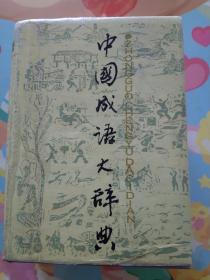 中國成语大辞典
ZHONGGUO CHENGYU DA CIDIAN